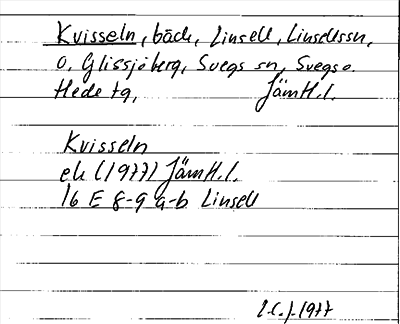 Kvisseln, bäck, Linsell, Linsellssn,
o. Glissjöberg, Svegs sn, Svegs o.
Hede tg, Jämtl. l.
Kvisseln
ek (1977) Jämtl. l.
16 E 8-9 a-b Linsell
1977